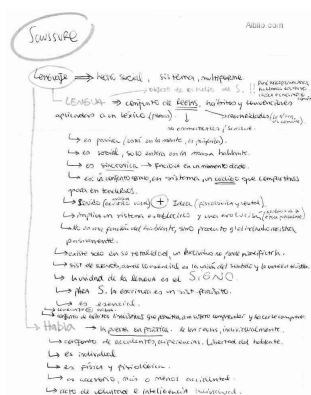 Alibilio.com
SAUSSURE
Lenguaje → hecho social, sistema, multiforme
objeto de estudio de S.
LENGUA → conjunto de REGLAS, hábitos y convenciones
aplicadas a un léxico
↳ es psíquica (está en la mente, es
↳ es social, solo entra en la masa hablante.
↳ es sincrónica → funciona en un momento dado.
↳ es un conjunto, un sistema, un código que compartimos
para entendernos.
↳ Sonido (acústico vocal) + Idea (psicológica y mental).
↳ implica un sistema establecido y una evolución
↳ No es una función del hablante, sino producto q' el individuo registra
pasivamente.
↳ existe solo en su totalidad, un individuo no puede modificarla.
↳ sist de signos, donde lo esencial es la unión del sentido y la imagen acústica.
↳ la unidad de la lengua es el SIGNO
↳ PARA S. la escritura es un sist
↳ es esencial.
↳ conjunto de hábitos lingüísticos que permiten a un sujeto comprender y hacerse comprender
Habla ↳ la puesta en práctica de las reglas, individualmente.
↳ conjunto de accidentes, experiencias. Libertad del hablante.
↳ es individual
↳ es física y fisiológica.
↳ es accesorio, más o menos accidental.
↳ acto de voluntad e inteligencia individual.